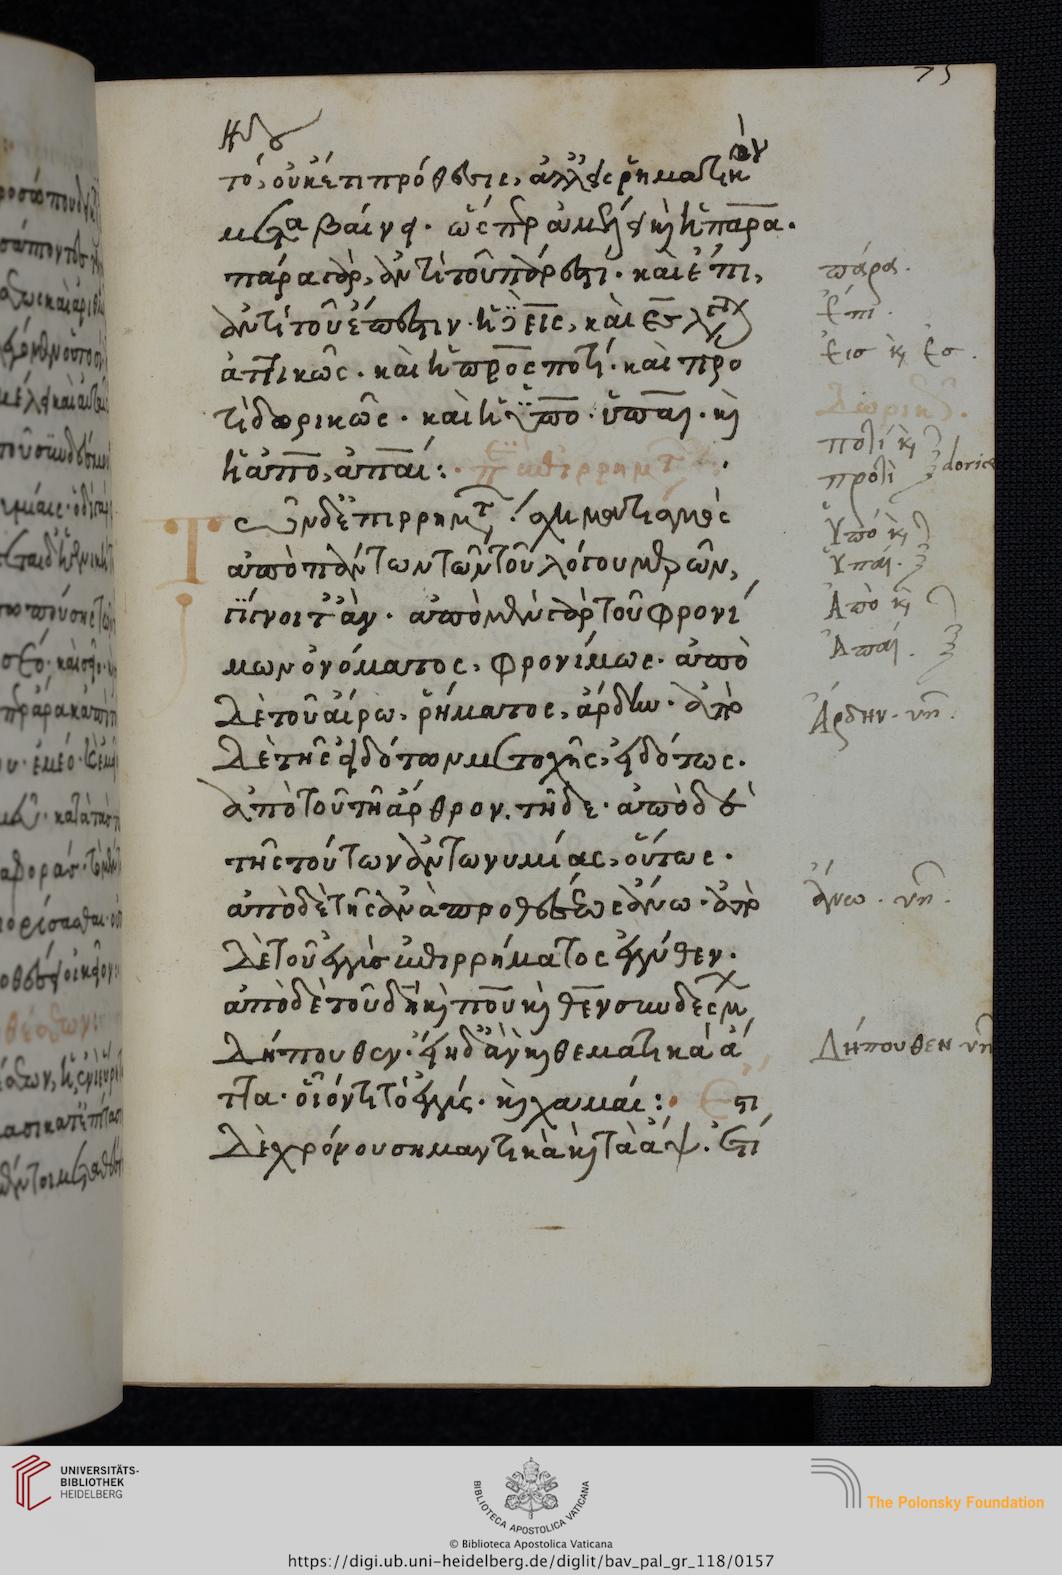 75
τό, οὐκέτι πρόθεσις, ἀλλ' εἰς ῥηματικὴν
μεταβαίνει. ὥσπερ ἀμέλει καὶ ἡ παρα.
πάρα γὰρ, ἀντὶ τοῦ πάρεστι. καὶ ἔπι,
ἀντὶ τοῦ ἔπεστιν. ἡ δὲ εἰς, καὶ ἐς
ἀττικῶς. καὶ ἡ προς ποτί. καὶ προ
τὶ δωρικῶς. καὶ ἡ ὑπο. ὑπαι. καὶ
ἡ απο, ἀπαί:
Τῶν δ' ἐπιρρημάτων
ἀπὸ πάντων τῶν τοῦ λόγου μερῶν,
γένοιτ' ἄν. ἀπὸ μὲν γὰρ τοῦ φρονί
μων ὀνόματος, φρονίμως. ἀπὸ
δὲ τοῦ αἴρω, ῥήματος, ἄρδην. ἀπὸ
δὲ τῆς εἰδότων μετοχῆς, εἰδότως.
ἀπὸ τοῦ τῆ ἄρθρον. τῆδε. ἀπὸ δὲ
τῆς τούτων ἀντωνυμίας, οὕτως.
ἀπὸ δὲ τῆς ἀνὰ προθέσεως ἄνω. ἀπὸ
δὲ τοῦ ἐγγὺς ἐπιρρήματος ἐγγύθεν.
ἀπὸ δὲ τοῦ δὴ καὶ που καὶ θεν συνδέσμων
δήπουθεν. εἴη δ' ἂν καὶ θεματικὰ ἄ
ττα. οἷόν τι τὸ ἐγγύς. καὶ χαμαί: Ἔτι
δὲ χρόνου σημαντικὰ καὶ τὰ ἄψ. ἔτι
πάρα.
ἔπι.
εἰσ καὶ ἐσ.
Δωρικῶς.
ποτί καὶ
προτὶ
dorice
Ὑπό καὶ
Ὑπαί.
Ἀπὸ καὶ
Ἀπαί.
Ἄρδην.
ἄνω.
Δήπουθεν
UNIVERSITÄTS-
BIBLIOTHEK
HEIDELBERG
BIBLIOTECA APOSTOLICA VATICANA
The Polonsky Foundation
© Biblioteca Apostolica Vaticana
https://digi.ub.uni-heidelberg.de/diglit/bav_pal_gr_118/0157